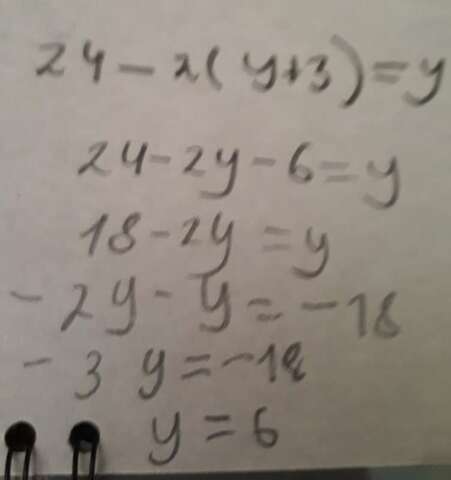 24-2(y+3)=y
24-2y-6=y
18-2y=y
-2y-y=-18
-3y=-18
y=6